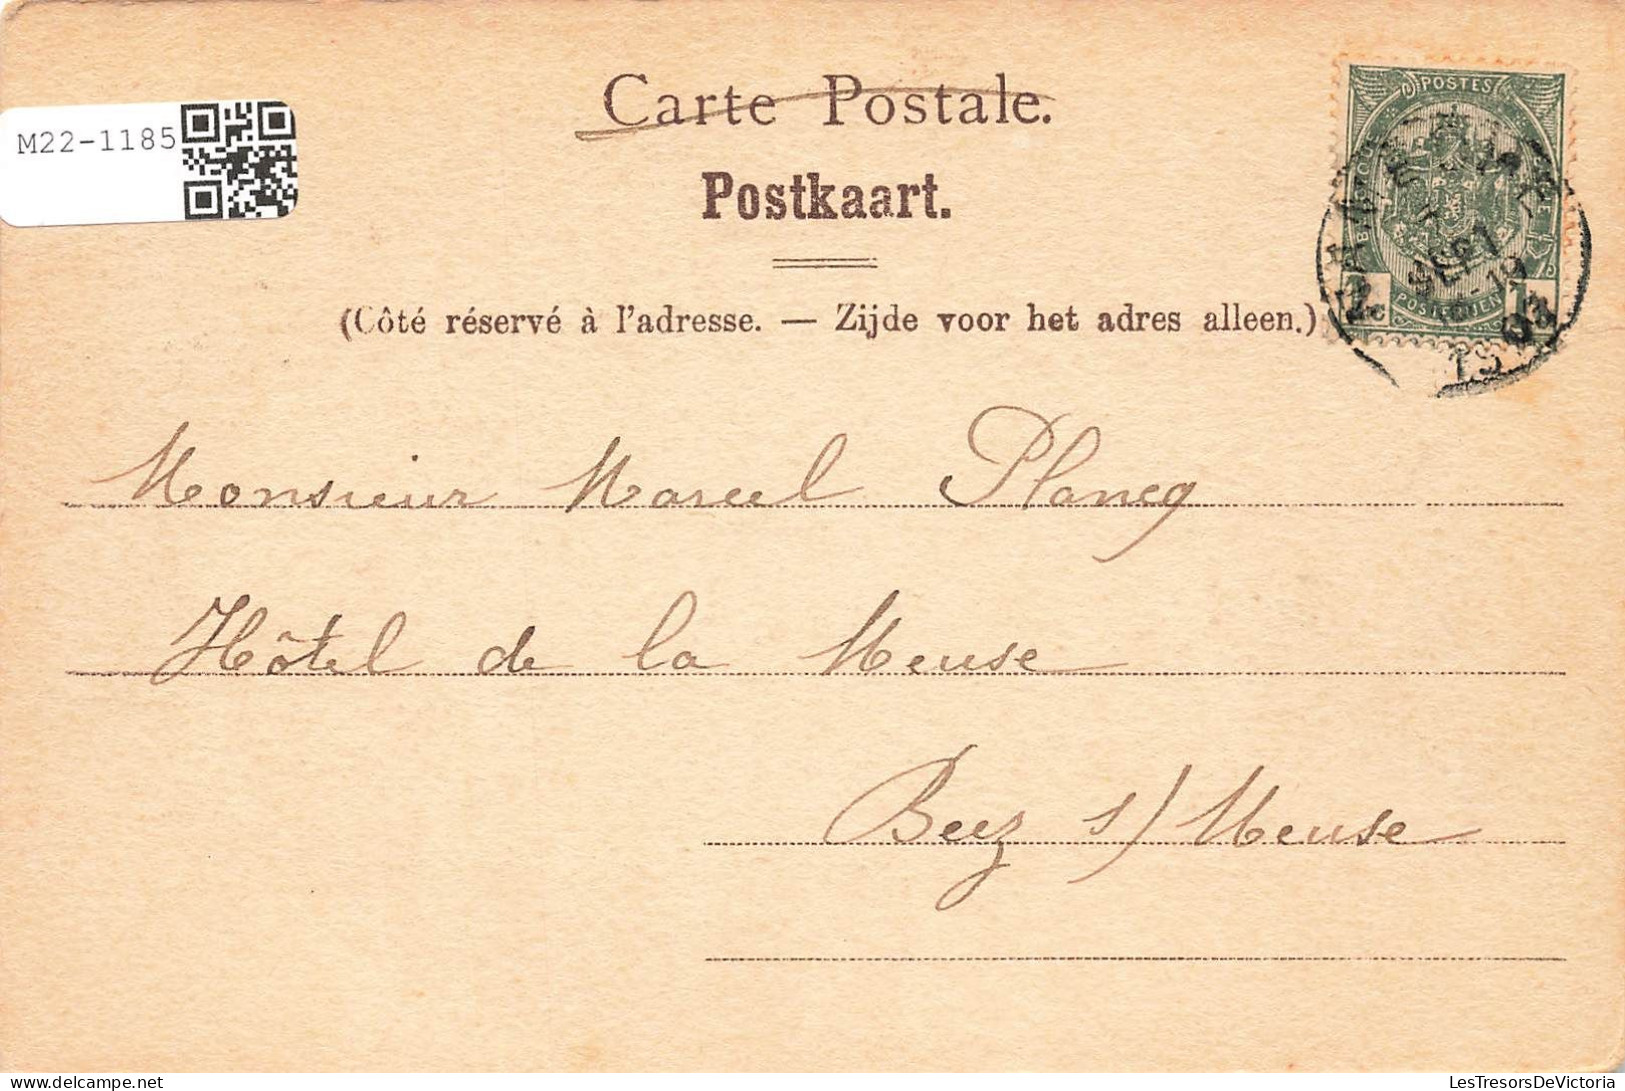 M22-1185
Carte Postale.
Postkaart.
(Côté réservé à l'adresse. — Zijde voor het adres alleen.)
POSTES
POSTERIJEN
SEPT
19
03
Monsieur Marcel Plancq
Hôtel de la Meuse
Beez s/ Meuse
LesTresorsDeVictoria